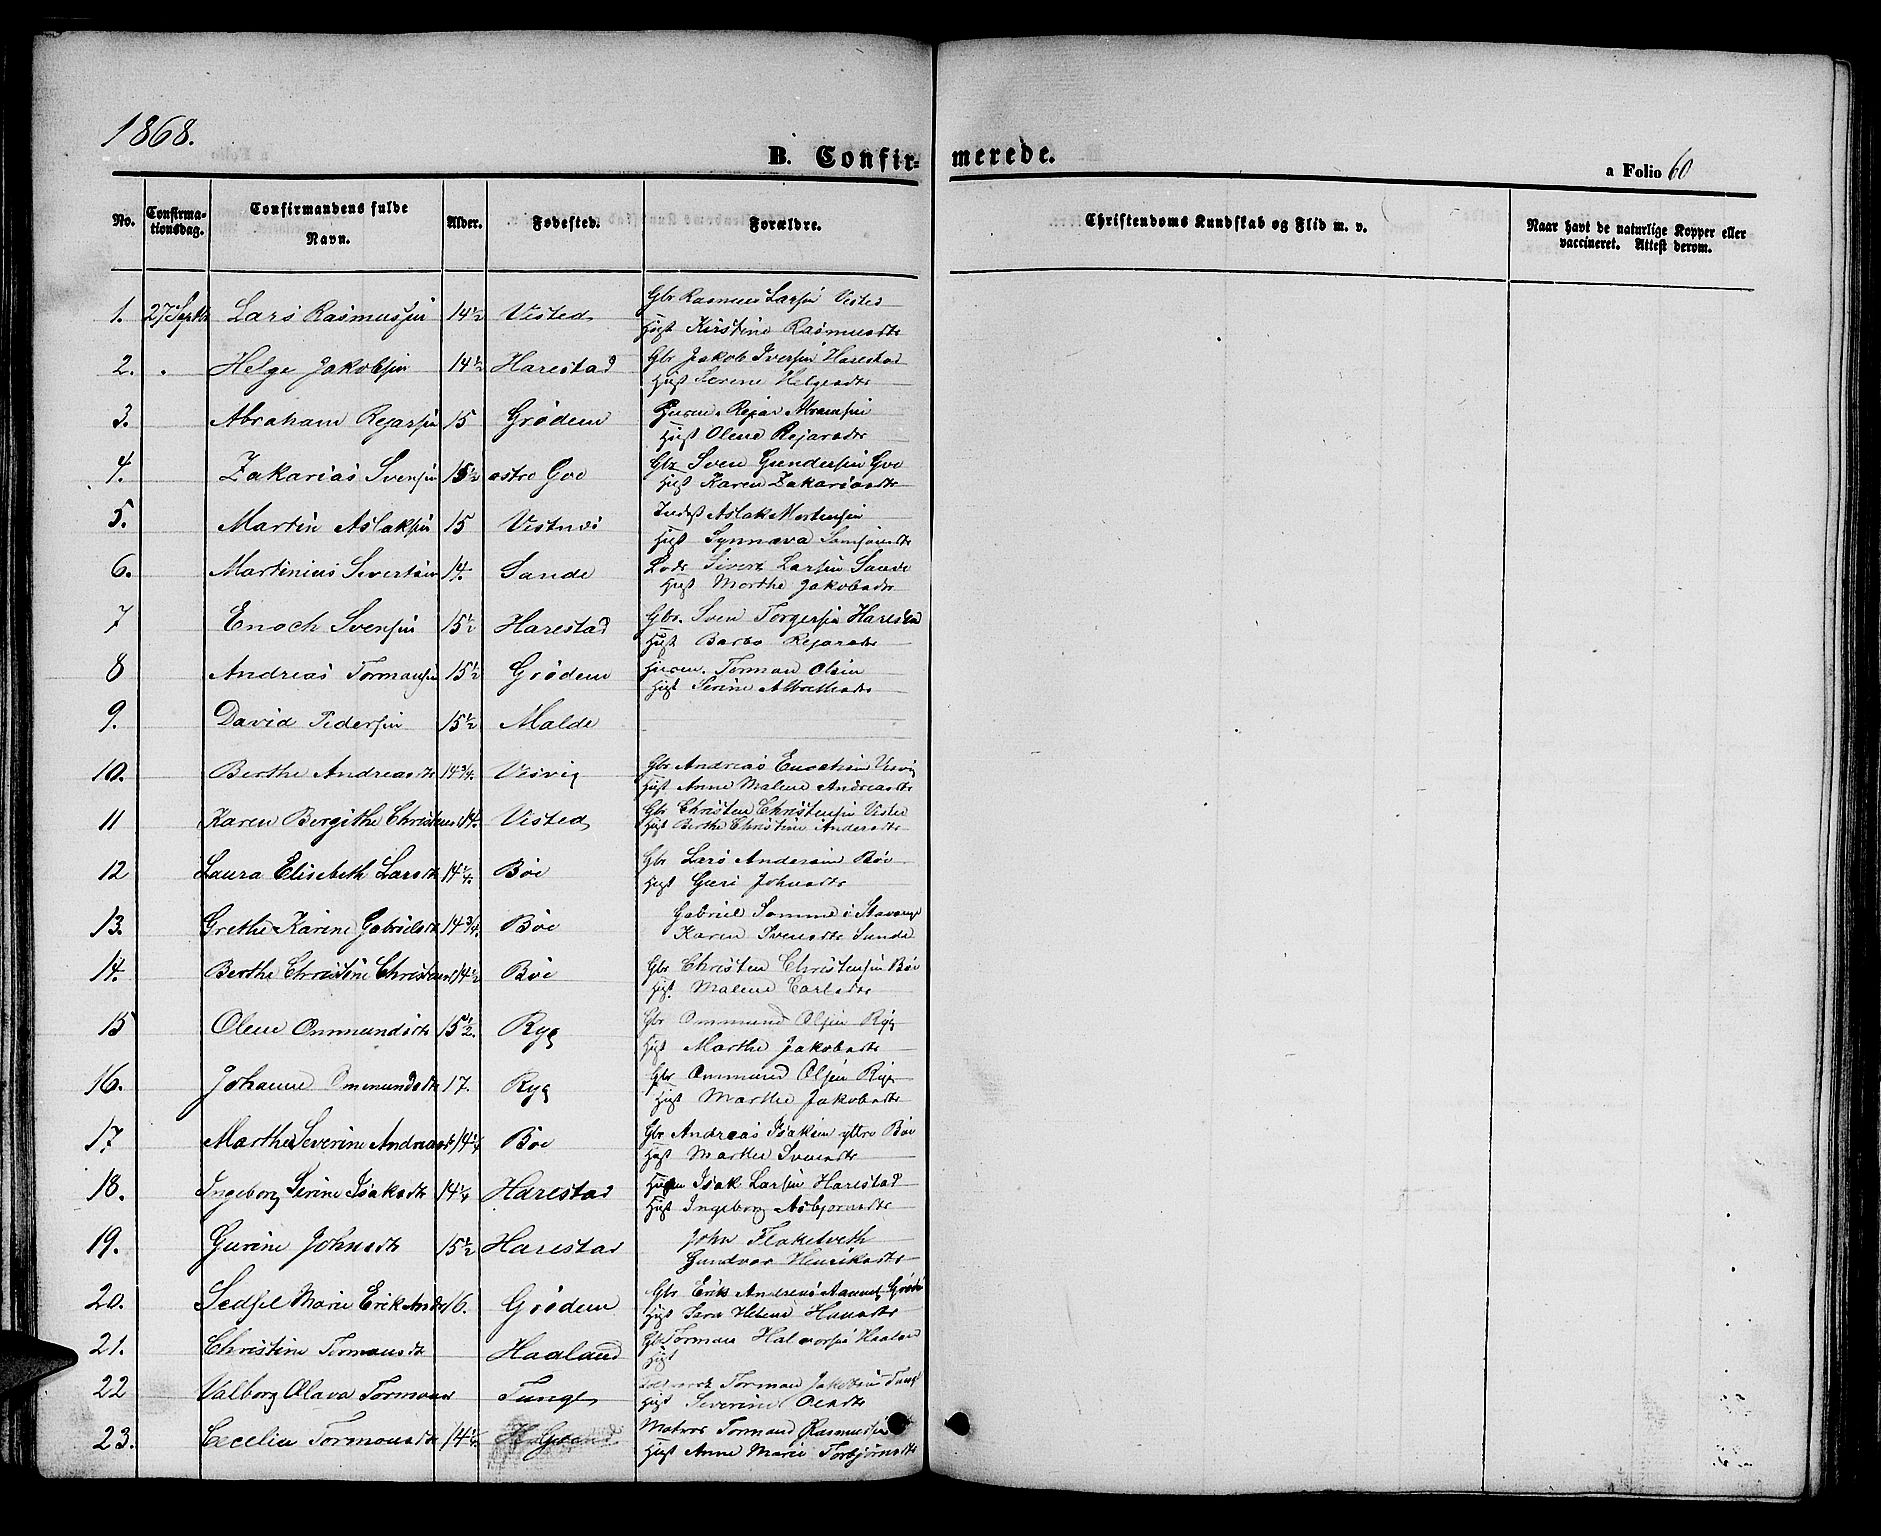 1868.
B. Confir-
merede.
a Folio 60
No.
Confirma-
tionsdag.
Confirmandens fulde
Navn.
Alder.
Fødested.
Forældre.
Christendoms Kundskab og Flid m. v.
Naar havt de naturlige Kopper eller
vaccineret. Attest derom.
1. 27 Septbr Lars Rasmussen 14½ Visted
Gbr Rasmus Larsen Visted
Hust Kirstine Rasmusdtr
2. Helge Jakobsen 14½ Harestad
Gbr Jakob Iversen Harestad
Hust Serene Helgesdtr
3. Abraham Rejarsen 15 Grødem
Huusm. Rejar Abramsen
Hust Olene Rejarsdtr
4. Zakarias Svensen 15½ østre Goe
Gbr Sven Gundersen Goe
Hust Karen Zakariasdtr
5. Martin Aslaksen 15 Vistnæs
Inds Aslak Mortensen
Hust Synnøva Samsonsdtr
6. Martinius Sivertsen 14. Sande
Lods Sivert Larsen Sande
Hust Marthe Jakobsdtr
7 Enoch Svensen 15½ Harestad
Gbr. Sven Torgersen Harestad
Hust Barbo Rejarsdtr
8 Andreas Tormansen 15½ Grødem
Huusm. Torman Olsen
Hust Serine Albretsdtr
9. David Pedersen 15½ Malde
10. Berthe Andreasdtr 14¾. Visvig
Gbr Andreas Enochsen Visvig
Hust Anne Malene Andreasdtr
11 Karen Bergithe Christens 14. Visted
Gbr Christen Christensen Visted
Hust Berthe Christine Andersdtr
12 Laura Elisebeth Larsdtr 14¼. Bøe
Gbr Lars Andersen Bøe
Hust Guri Johnsdtr
13. Grethe Karine Gabrielsdtr 14¾. Bøe
Gabriel Somme i Stavanger
Karen Svensdtr Sunde
14. Berthe Christine Christens 14½ Bøe
Gbr Christen Christensen Bøe
Hust. Malene Carlsdtr
15 Olene Ommundsdtr 15½. Ryg
Gbr Ommund Olsen Ryg
Hust Marthe Jakobsdtr
16. Johanne Ommundsdtr 17. Ryg
Gbr Ommund Olsen Ryg
Hust Marthe Jakobsdtr
17. Marthe Severine Andreasdt 14¼ Bøe
Gbr Andreas Isaksen yttre Bøe
Hust Marthe Svensdtr
18. Ingeborg Serine Isaksdtr 14¼ Harestad
Huusm Isak Larsen Harestad
Hust Ingeborg Asbjørnsdtr
19. Gurine Johnsdtr 15½ Harestad
John Fladetveth
Gundvor Henriksdtr
20. Sedsel Marie Erik Andr 16. Grødem
Gbr. Erik Andreas Grødem
Hust Sara Helene Hansdtr
21. Christine Tormansdtr Haaland
Gbr Torman Halvorsen Haaland
Hust
22 Valborg Olava Tormansd Tunge
Torman Jakobsen Tunge
Hust Severine Olsdtr
23. Cecelia Tormansdtr 14¼
Matros Tormand Rasmussen
Hust Anne Marie Torbjørnsdtr